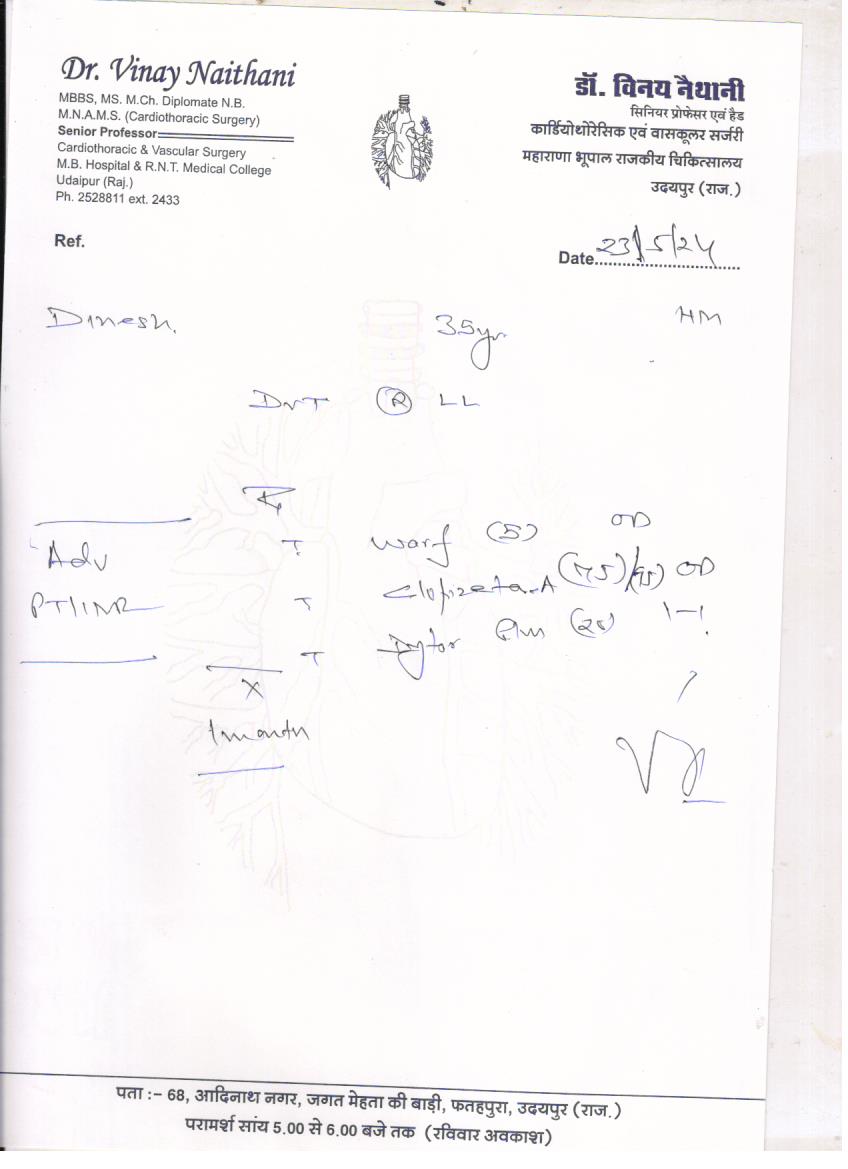 Dr. Vinay Naithani
MBBS, MS. M.Ch. Diplomate N.B.
M.N.A.M.S. (Cardiothoracic Surgery)
Senior Professor
Cardiothoracic & Vascular Surgery
M.B. Hospital & R.N.T. Medical College
Udaipur (Raj.)
Ph. 2528811 ext. 2433
डॉ. विनय नैथानी
सिनियर प्रोफेसर एवं हैड
कार्डियोथोरेसिक एवं वासकूलर सर्जरी
महाराणा भूपाल राजकीय चिकित्सालय
उदयपुर (राज.)
Ref.
Date 23/5/24
Dinesh. 35yr HM
DVT R LL
Rx
T. Warf (5) OD
T Clopizeta-A (75)/(75) OD
T Dytor Plus (20) 1-1
Adv
PT/INR
X
1 month
पता :– 68, आदिनाथ नगर, जगत मेहता की बाड़ी, फतहपुरा, उदयपुर (राज.)
परामर्श सांय 5.00 से 6.00 बजे तक (रविवार अवकाश)